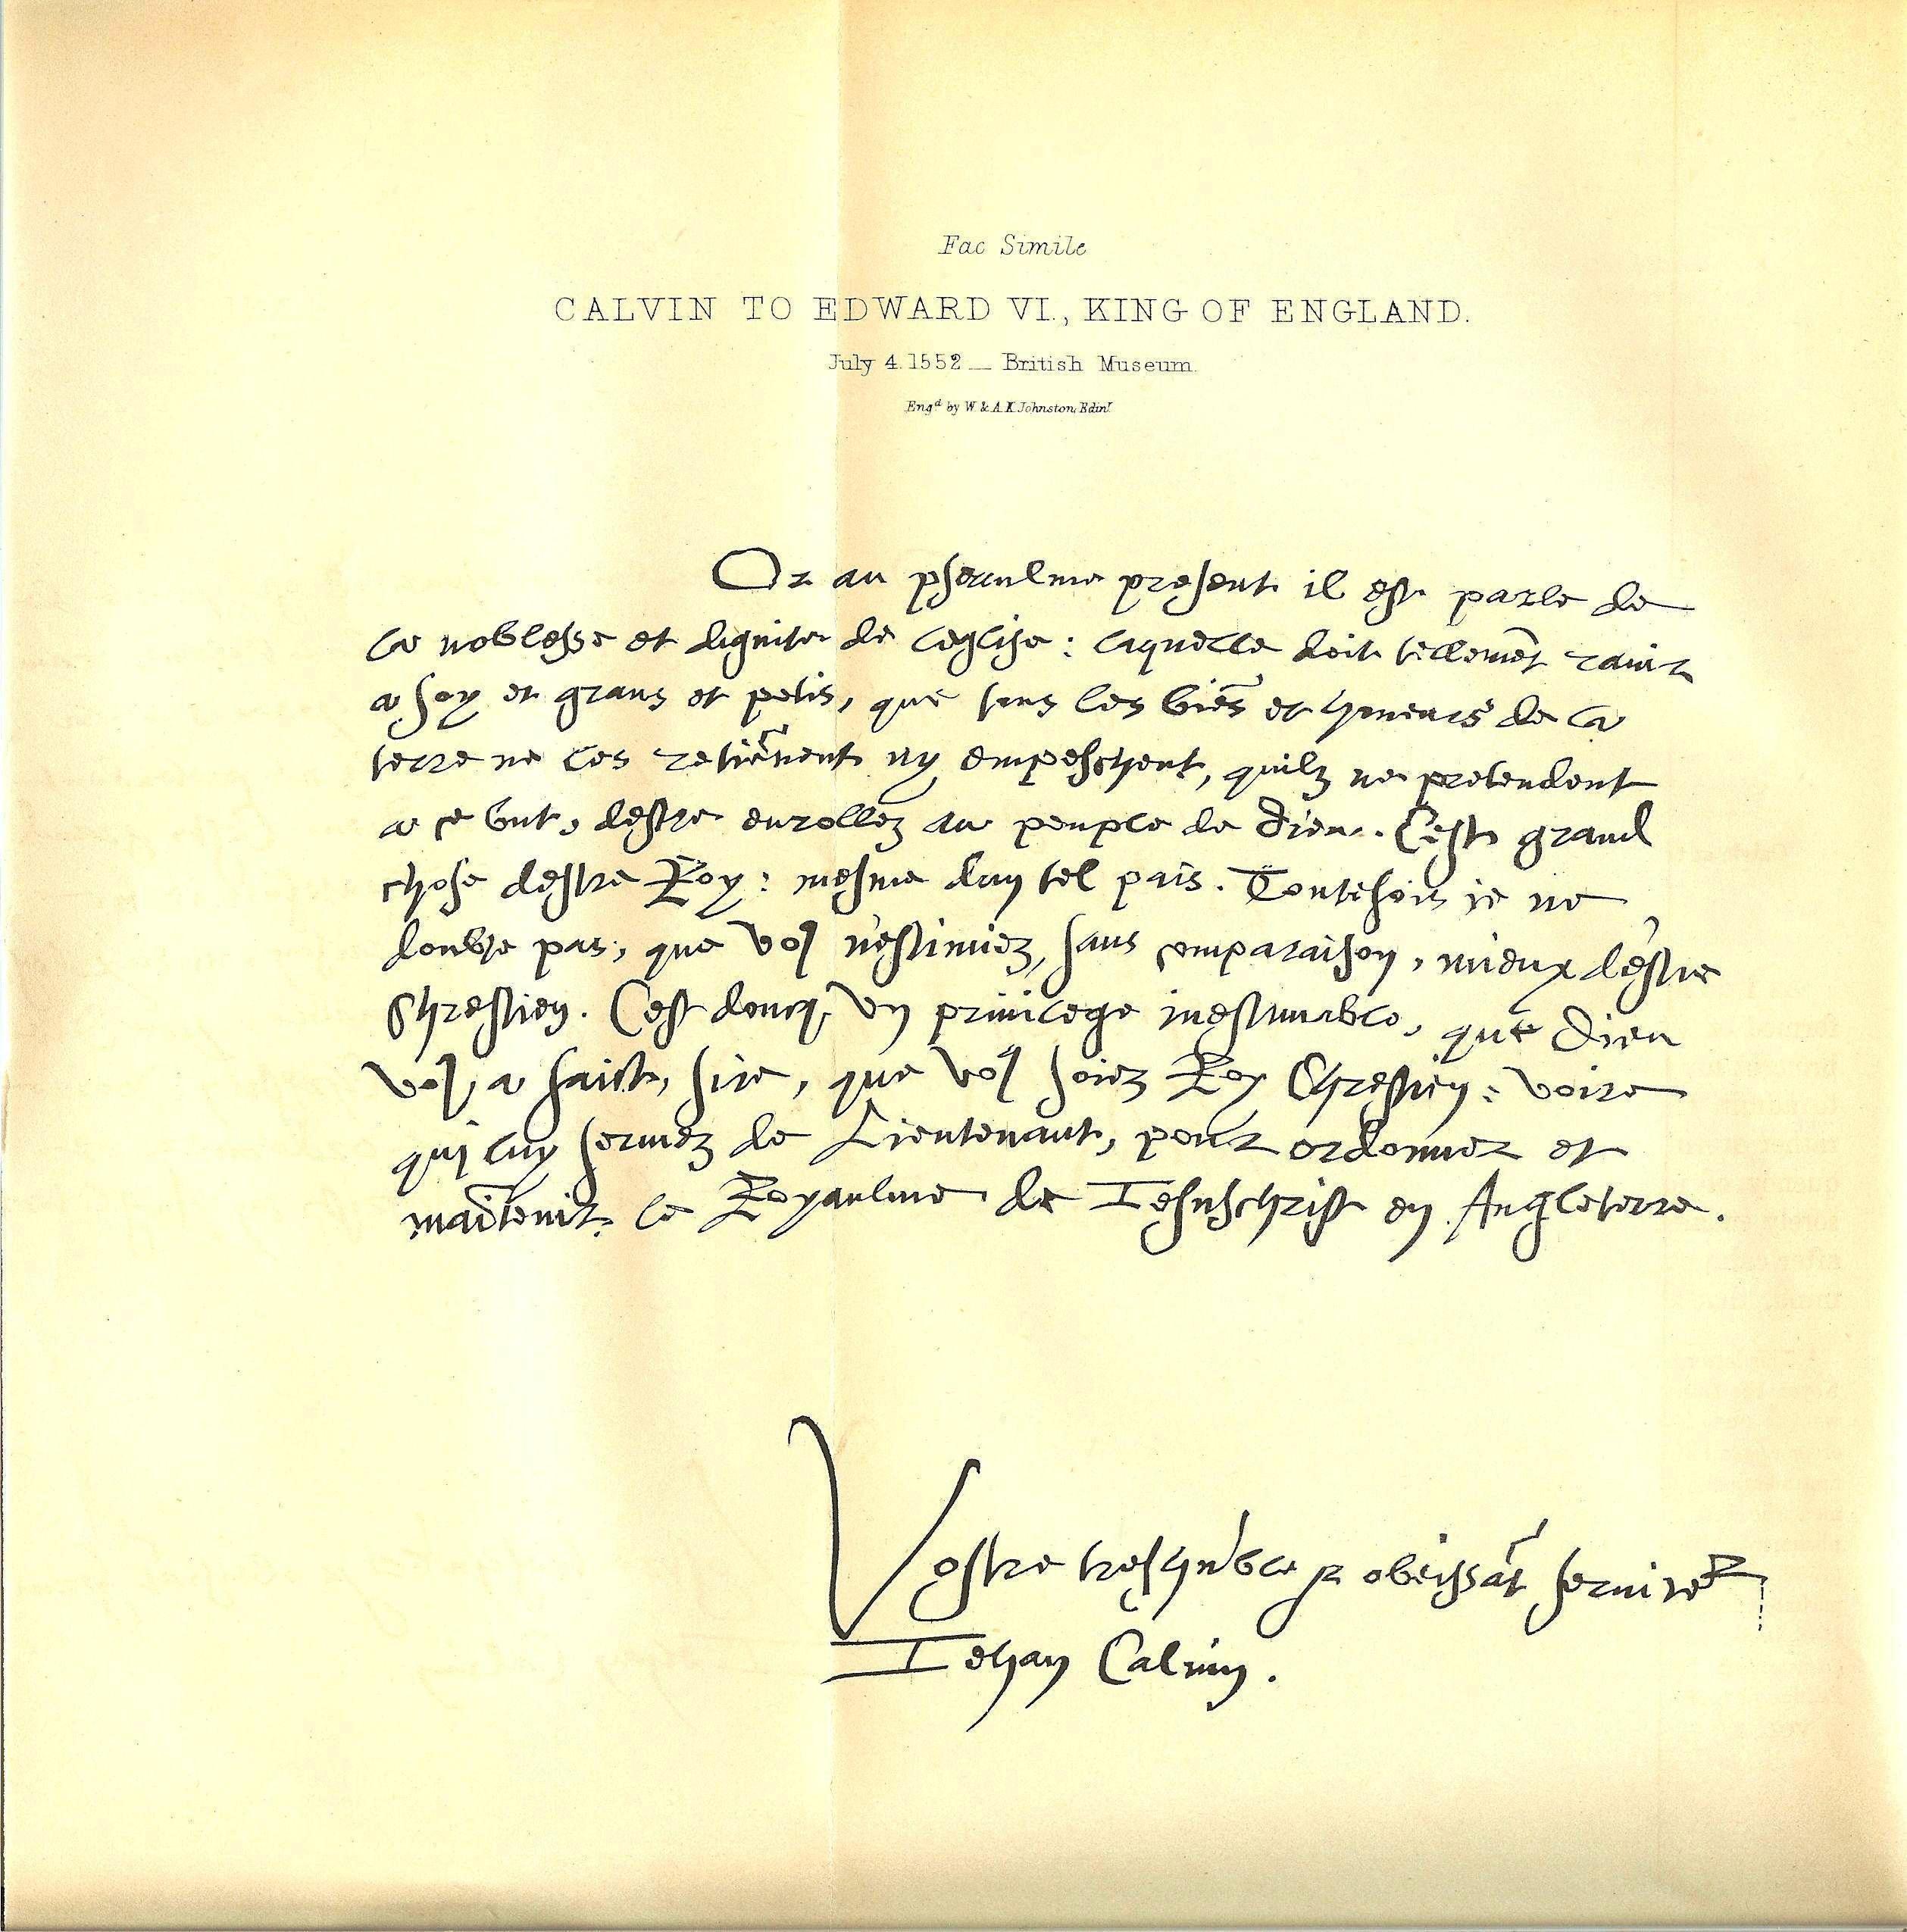 Fac Simile
CALVIN TO EDWARD VI., KING OF ENGLAND.
July 4. 1552 — British Museum.
Engd by W. & A. K. Johnston, Edinr
Or au pseaulme present il est parle de
la noblesse et dignite de leglise: laquelle doit tellemēt rauir
a soy et grans et petis, que tous les biēs et honeurs de la
terre ne les retiēnent ny empeschent, quilz ne pretendent
a ce but, destre enrollez au peuple de Dieu. Cest grand
chose destre Roy: mesme dun tel pais. Toutesfois ie ne
doubte pas, que vo9 nestimiez, sans comparaison, mieux destre
Chrestien. Cest doncq un priuilege inestimable, que Dieu
vo9 a faict, sire, que vo9 soiez Roy Chrestien: voire
qui luy seruiez de Lieutenant, pour ordonner et
maītenir le Royaulme de Iesuschrist en Angleterre.
Vostre treshūble et obeissāt seruiter
Iehan Caluin.